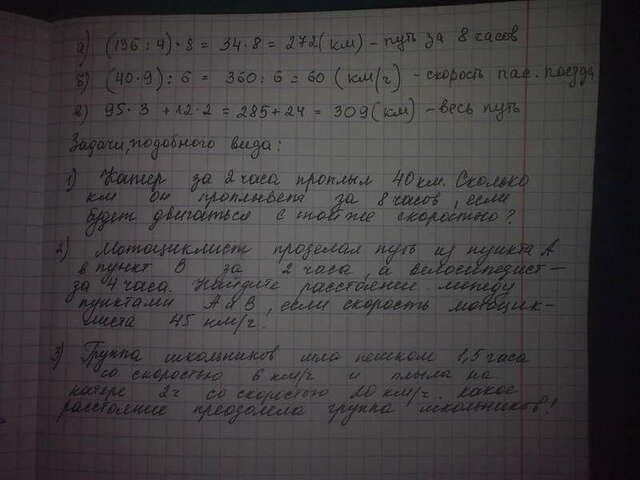 а) (136 : 4) · 8 = 34 · 8 = 272 (км) – путь за 8 часов
б) (40 · 9) : 6 = 360 : 6 = 60 (км/ч) – скорость пас. поезда
в) 95 · 3 + 12 · 2 = 285 + 24 = 309 (км) – весь путь
Задачи, подобного вида:
1) Катер за 2 часа проплыл 40 км. Сколько
км он проплывёт за 8 часов, если
будет двигаться с той же скоростью?
2) Мотоциклист проделал путь из пункта А
в пункт В за 2 часа, а велосипедист –
за 4 часа. Найдите расстояние между
пунктами А и В, если скорость мотоцик-
листа 45 км/ч.
3) Группа школьников шла пешком 1,5 часа
со скоростью 6 км/ч и плыла на
катере 2ч со скоростью 20 км/ч. какое
расстояние преодолела группа школьников?